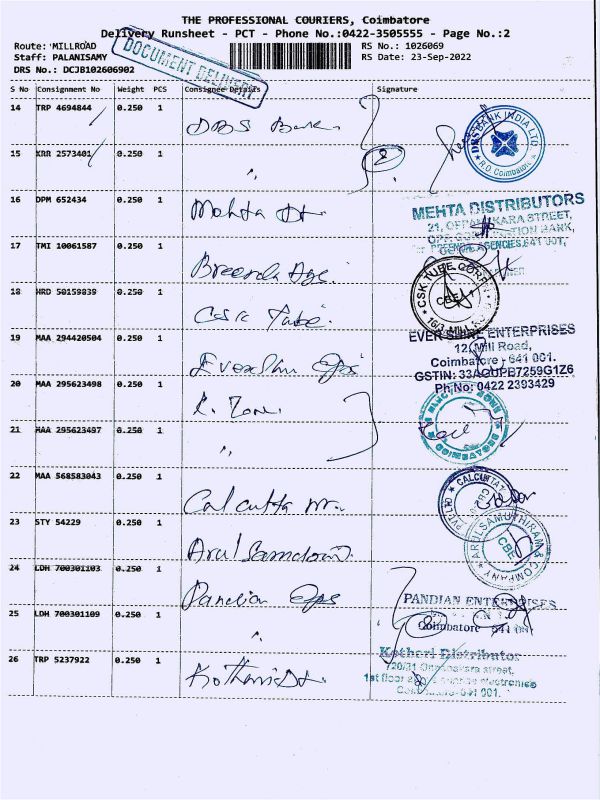 THE PROFESSIONAL COURIERS, Coimbatore
Delivery Runsheet - PCT - Phone No.:0422-3505555 - Page No.:2
Route: MILLROAD
RS No.: 1026069
Staff: PALANISAMY
RS Date: 23-Sep-2022
DRS No.: DCJB102606902
DOCUMENT DELIVERY
S No Consignment No Weight PCS Consignee Details Signature
14 TRP 4694844 0.250 1 DBS Bank
DBS BANK INDIA LTD R.O. Coimbatore
15 KRR 2573401 0.250 1 "
16 DPM 652434 0.250 1 Mehta Dt.
MEHTA DISTRIBUTORS
17 TMI 10061587 0.250 1
18 HRD 50159839 0.250 1 CSK Tube
CSK TUBE CORPN CBE
19 MAA 294420504 0.250 1
EVER SHINE ENTERPRISES
12, Mill Road,
Coimbatore - 641 001.
GSTIN: 33AGUPB7259G1Z6
Ph No: 0422 2393429
20 MAA 295623498 0.250 1 E. Zone
COIMBATORE
21 MAA 295623497 0.250 1 "
22 MAA 568583043 0.250 1 Calcutta
CALCUTTA PVT LTD
23 STY 54229 0.250 1
ARULSAMUTHIRAM COMPANY CBE
24 LDH 700301103 0.250 1 Pandian
PANDIAN ENTERPRISES
25 LDH 700301109 0.250 1 "
Coimbatore
26 TRP 5237922 0.250 1 Kothari Dt.
Kothari Distributor
1st floor
electronics
641 001.